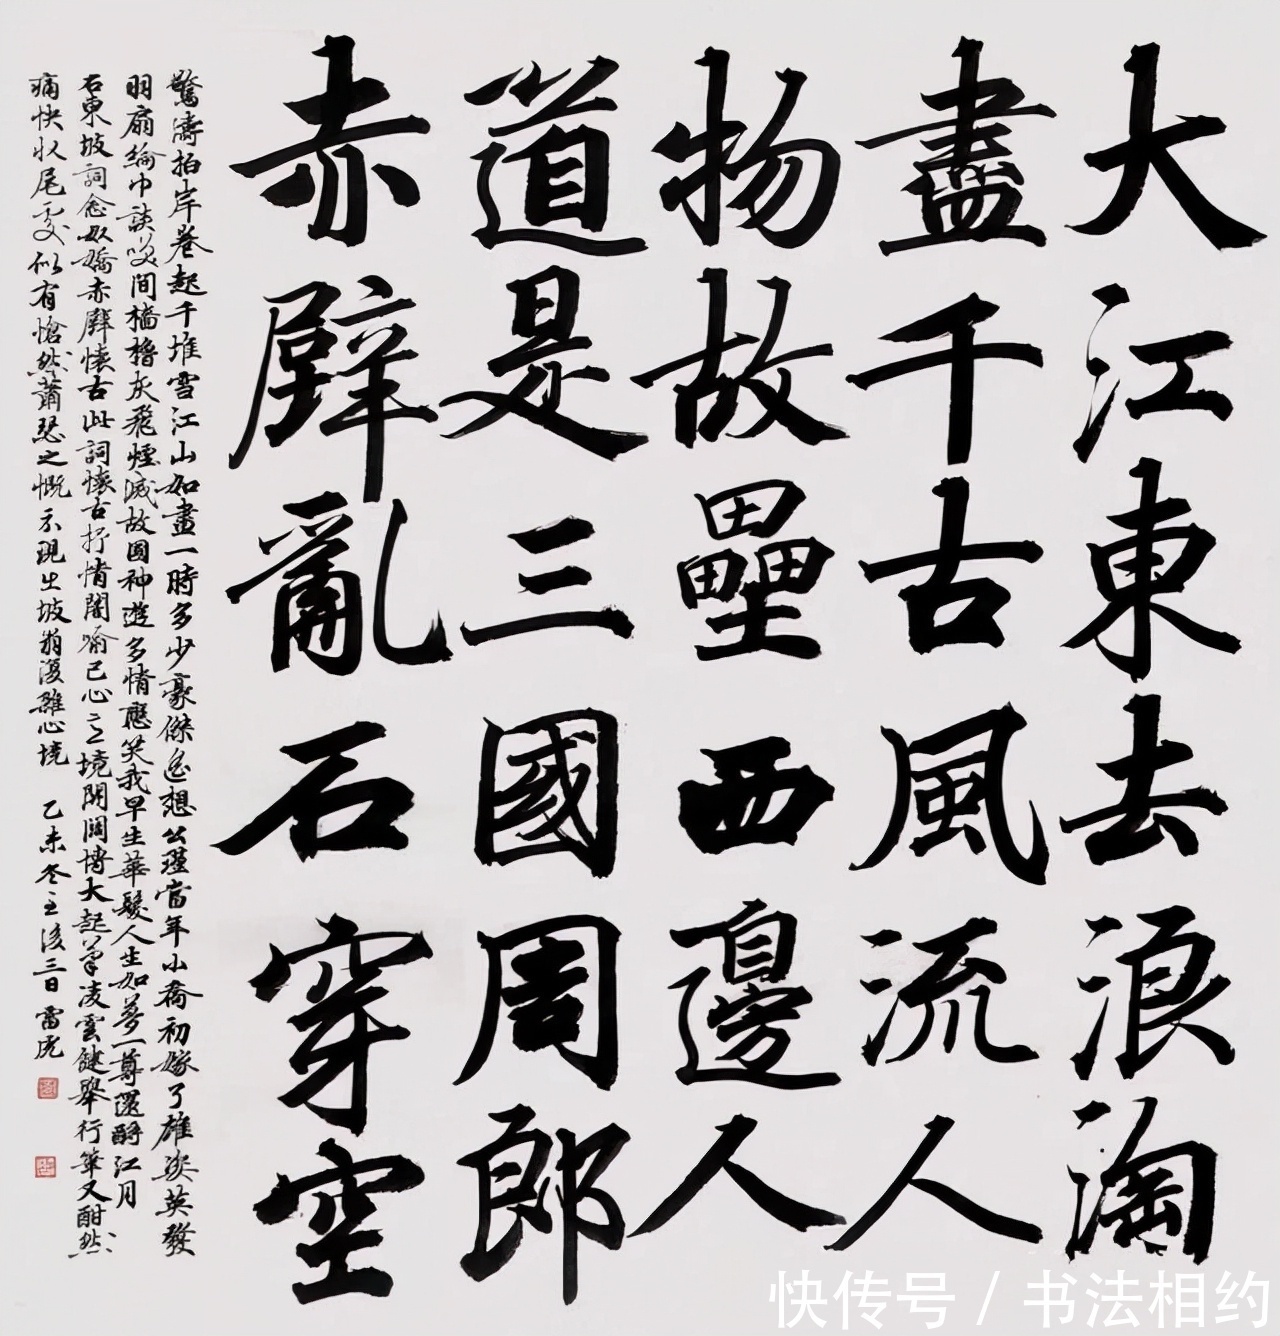 大江東去浪淘
盡千古風流人
物故壘西邊人
道是三國周郎
赤壁亂石穿空
驚濤拍岸卷起千堆雪江山如畫一時多少豪傑遙想公瑾當年小喬初嫁了雄姿英發
羽扇綸巾談笑間檣櫓灰飛煙滅故國神遊多情應笑我早生華髮人生如夢一尊還酹江月
右東坡詞念奴嬌赤壁懷古此詞懷古抒情闇喻己心之境開闊博大起筆凌雲健舉行筆又酣然
痛快收尾處似有愴然蕭瑟之慨亦現出坡翁復雜心境 乙未冬至後三日 雷虎
快传号/书法相约